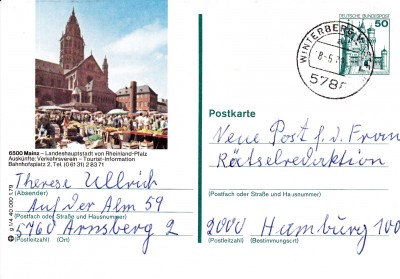 DEUTSCHE BUNDESPOST
50
WINTERBERG
8-5.7
578
Postkarte
6500 Mainz – Landeshauptstadt von Rheinland-Pfalz
Auskünfte: Verkehrsverein – Tourist-Information
Bahnhofsplatz 2, Tel. (0 61 31) 2 83 71
Therese Ullrich
(Absender)
Auf der Alm 59
(Postfach oder Straße und Hausnummer)
5760 Arnsberg 2
(Postleitzahl) (Ort)
g 1/4 40 000 1.79
Neue Post f. d. Frau
Rätselredaktion
(Postfach oder Straße und Hausnummer)
2000 Hamburg 100
(Postleitzahl) (Bestimmungsort)